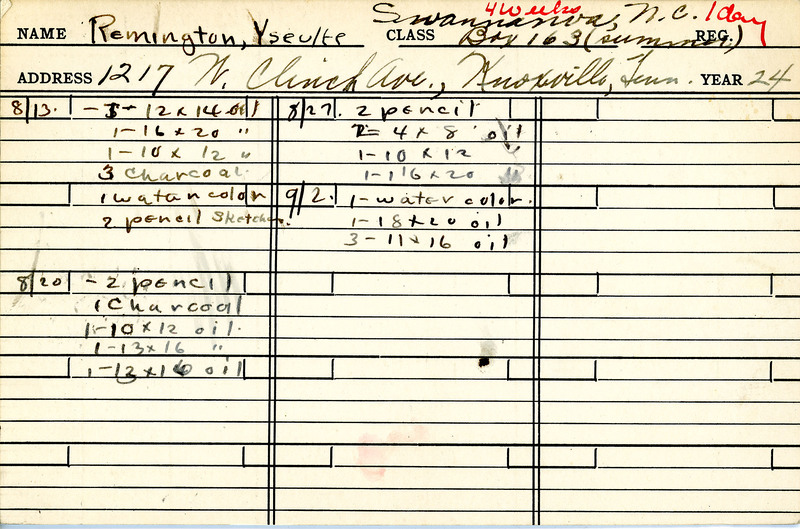 4 Weeks 1 day
Swannanoa, N.C.
NAME Remington, Yseulte CLASS Box 163 (summer) REG.
ADDRESS 1217 W. Clinch Ave., Knoxville, Tenn. YEAR 24
8/13. - 3 - 12 x 14 oil
1 - 16 x 20 "
1 - 10 x 12 "
3 Charcoal
1 water color
2 pencil Sketches.
8/20 - 2 pencil
1 Charcoal
1 - 10 x 12 oil.
1 - 13 x 16 "
1 - 12 x 16 oil
8/27. 2 pencil
2 = 4 x 8 oil
1 - 10 x 12 "
1 - 16 x 20 "
9/2. 1 - water color.
1 - 18 x 20 oil
3 - 11 x 16 oil